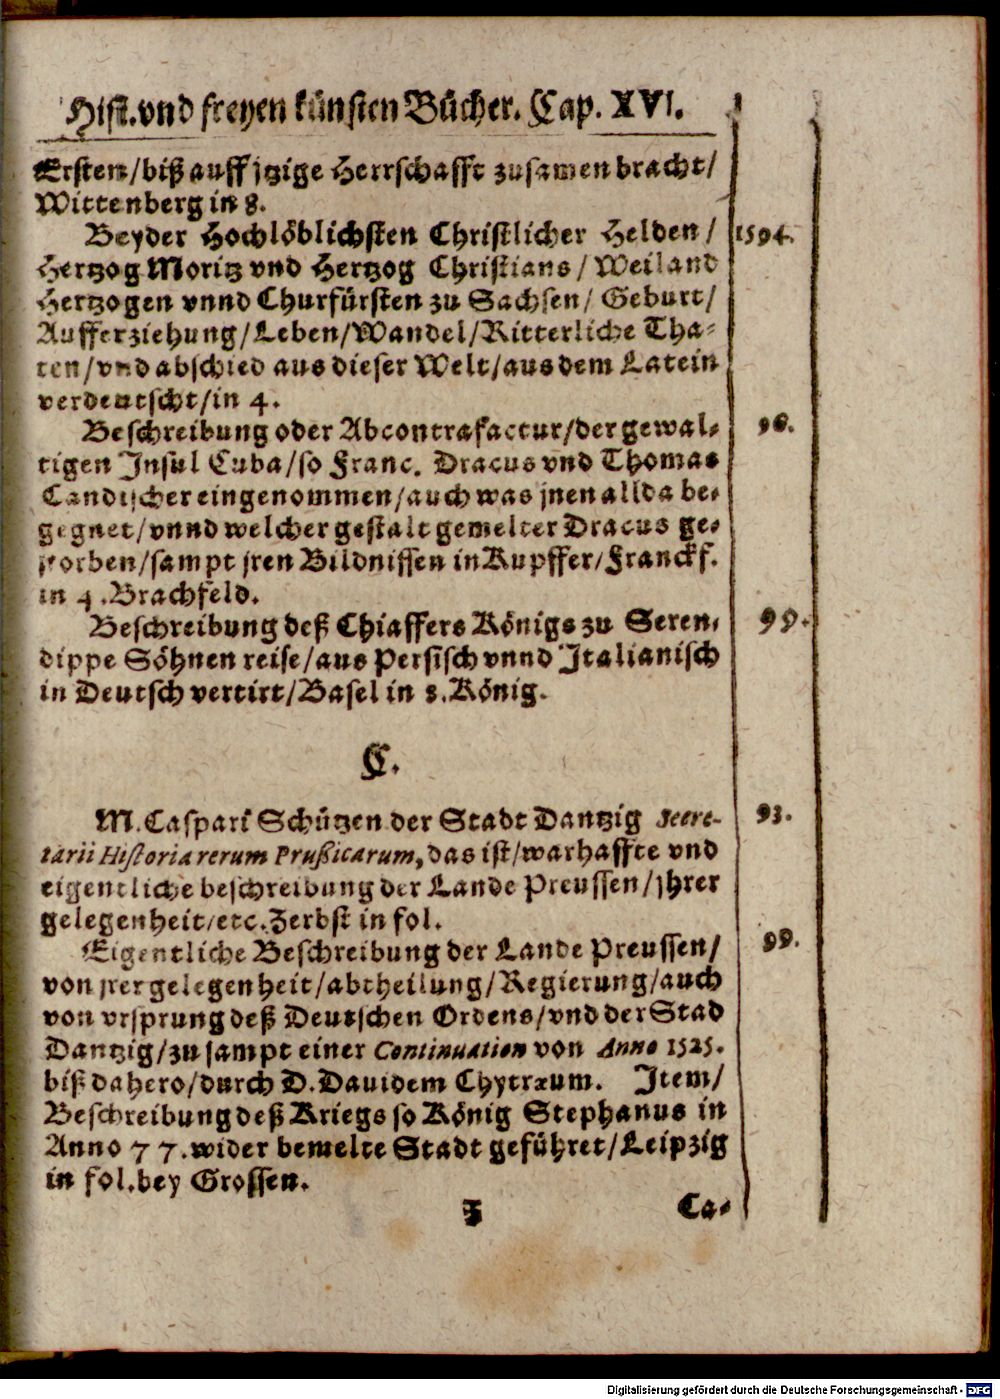 Hist. vnd freyen künsten Bücher. Cap. XVI.
Ersten/biß auff jtzige Herrschafft zusamen bracht/
Wittenberg in 8.
Beyder Hochlöblichsten Christlicher Helden/ 1594.
Hertzog Moritz vnd Hertzog Christians/Weiland
Hertzogen vnnd Churfürsten zu Sachsen/Geburt/
Aufferziehung/Leben/Wandel/Ritterliche Tha-
ten/vnd abschied aus dieser Welt/aus dem Latein
verdeutscht/in 4.
Beschreibung oder Abcontrafactur/der gewal- 96.
tigen Insul Cuba/so Franc. Dracus vnd Thomas
Candischer eingenommen/auch was jnen allda be-
gegnet/vnnd welcher gestalt gemelter Dracus ge-
storben/sampt jren Bildnissen in Kupffer/Franckf.
in 4. Brachfeld.
Beschreibung deß Chiaffers Königs zu Seren- 99.
dippe Söhnen reise/aus Persisch vnnd Italianisch
in Deutsch vertirt/Basel in 8. König.
C.
M. Caspari Schützen der Stadt Dantzig Secre- 93.
tarii Historia rerum Prußicarum, das ist/warhaffte vnd
eigentliche beschreibung der Lande Preussen/jhrer
gelegenheit/etc. Zerbst in fol.
Eigentliche Beschreibung der Lande Preussen/ 99.
von jrer gelegenheit/abtheilung/Regierung/auch
von vrsprung deß Deutschen Ordens/vnd der Stad
Dantzig/zu sampt einer Continuation von Anno 1525.
biß dahero/durch D. Dauidem Chytræum. Item/
Beschreibung deß Kriegs so König Stephanus in
Anno 77. wider bemelte Stadt geführet/Leipzig
in fol. bey Grossen.
Z Ca-
Digitalisierung gefördert durch die Deutsche Forschungsgemeinschaft - DFG